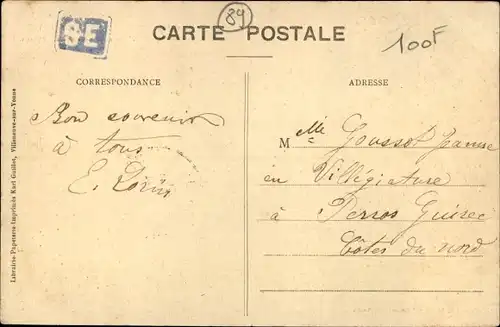 SE
89
CARTE POSTALE
100F
CORRESPONDANCE
ADRESSE
Bon souvenir
à tous
E.
Melle Goussot Jeanne
en Villégiature
à Perros Guirec
Côtes du nord
Librairie-Papeterie-Imprimerie Karl Guillot, Villeneuve-sur-Yonne